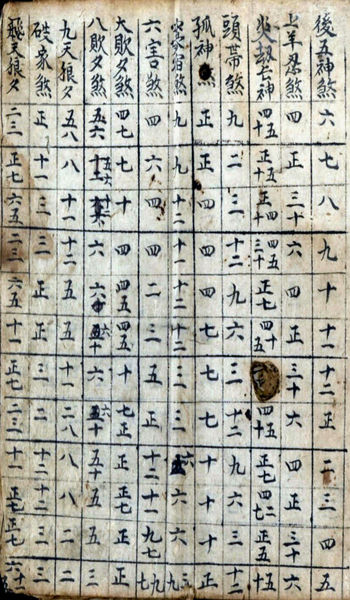 後五神煞 六 七 八 九 十 十一 十二 正 二 三 四 五
上羊忍煞 四 正 三十 六 四 正 三十 六 四 正 三十 六
炎劫七神 四五十 正五十 正十 四五三十 正七 四五十 四五十 正七 四七二 正五 十五
頭帶煞 九 二 三 十二 九 六 三 十二 九 六 三 十二
孤神煞 正 正 四 四 四 七 七 七 十 十 十 正
宿煞 九 九 十二 十一 十二 十二 三 三 六 六 六 九
六害煞 四 六 四 四 二 三 五 正 十二 十一 九七 七
大敗夕煞 四七 七 十 四 四五 四五 十 七正 正 正七 正 正
八敗夕煞 五六 六 六 五十 五 五 三
九天狼夕 五八 八 十一 十二 五 五 十一 二八 八 八 二 二
破家煞 正 十一 三 三 正 正 三 二 十二 十二 二 三
飛天狼夕 二三 正七 六五 二三 六五 十一 正七 二三 十一 正七 正七 六十五